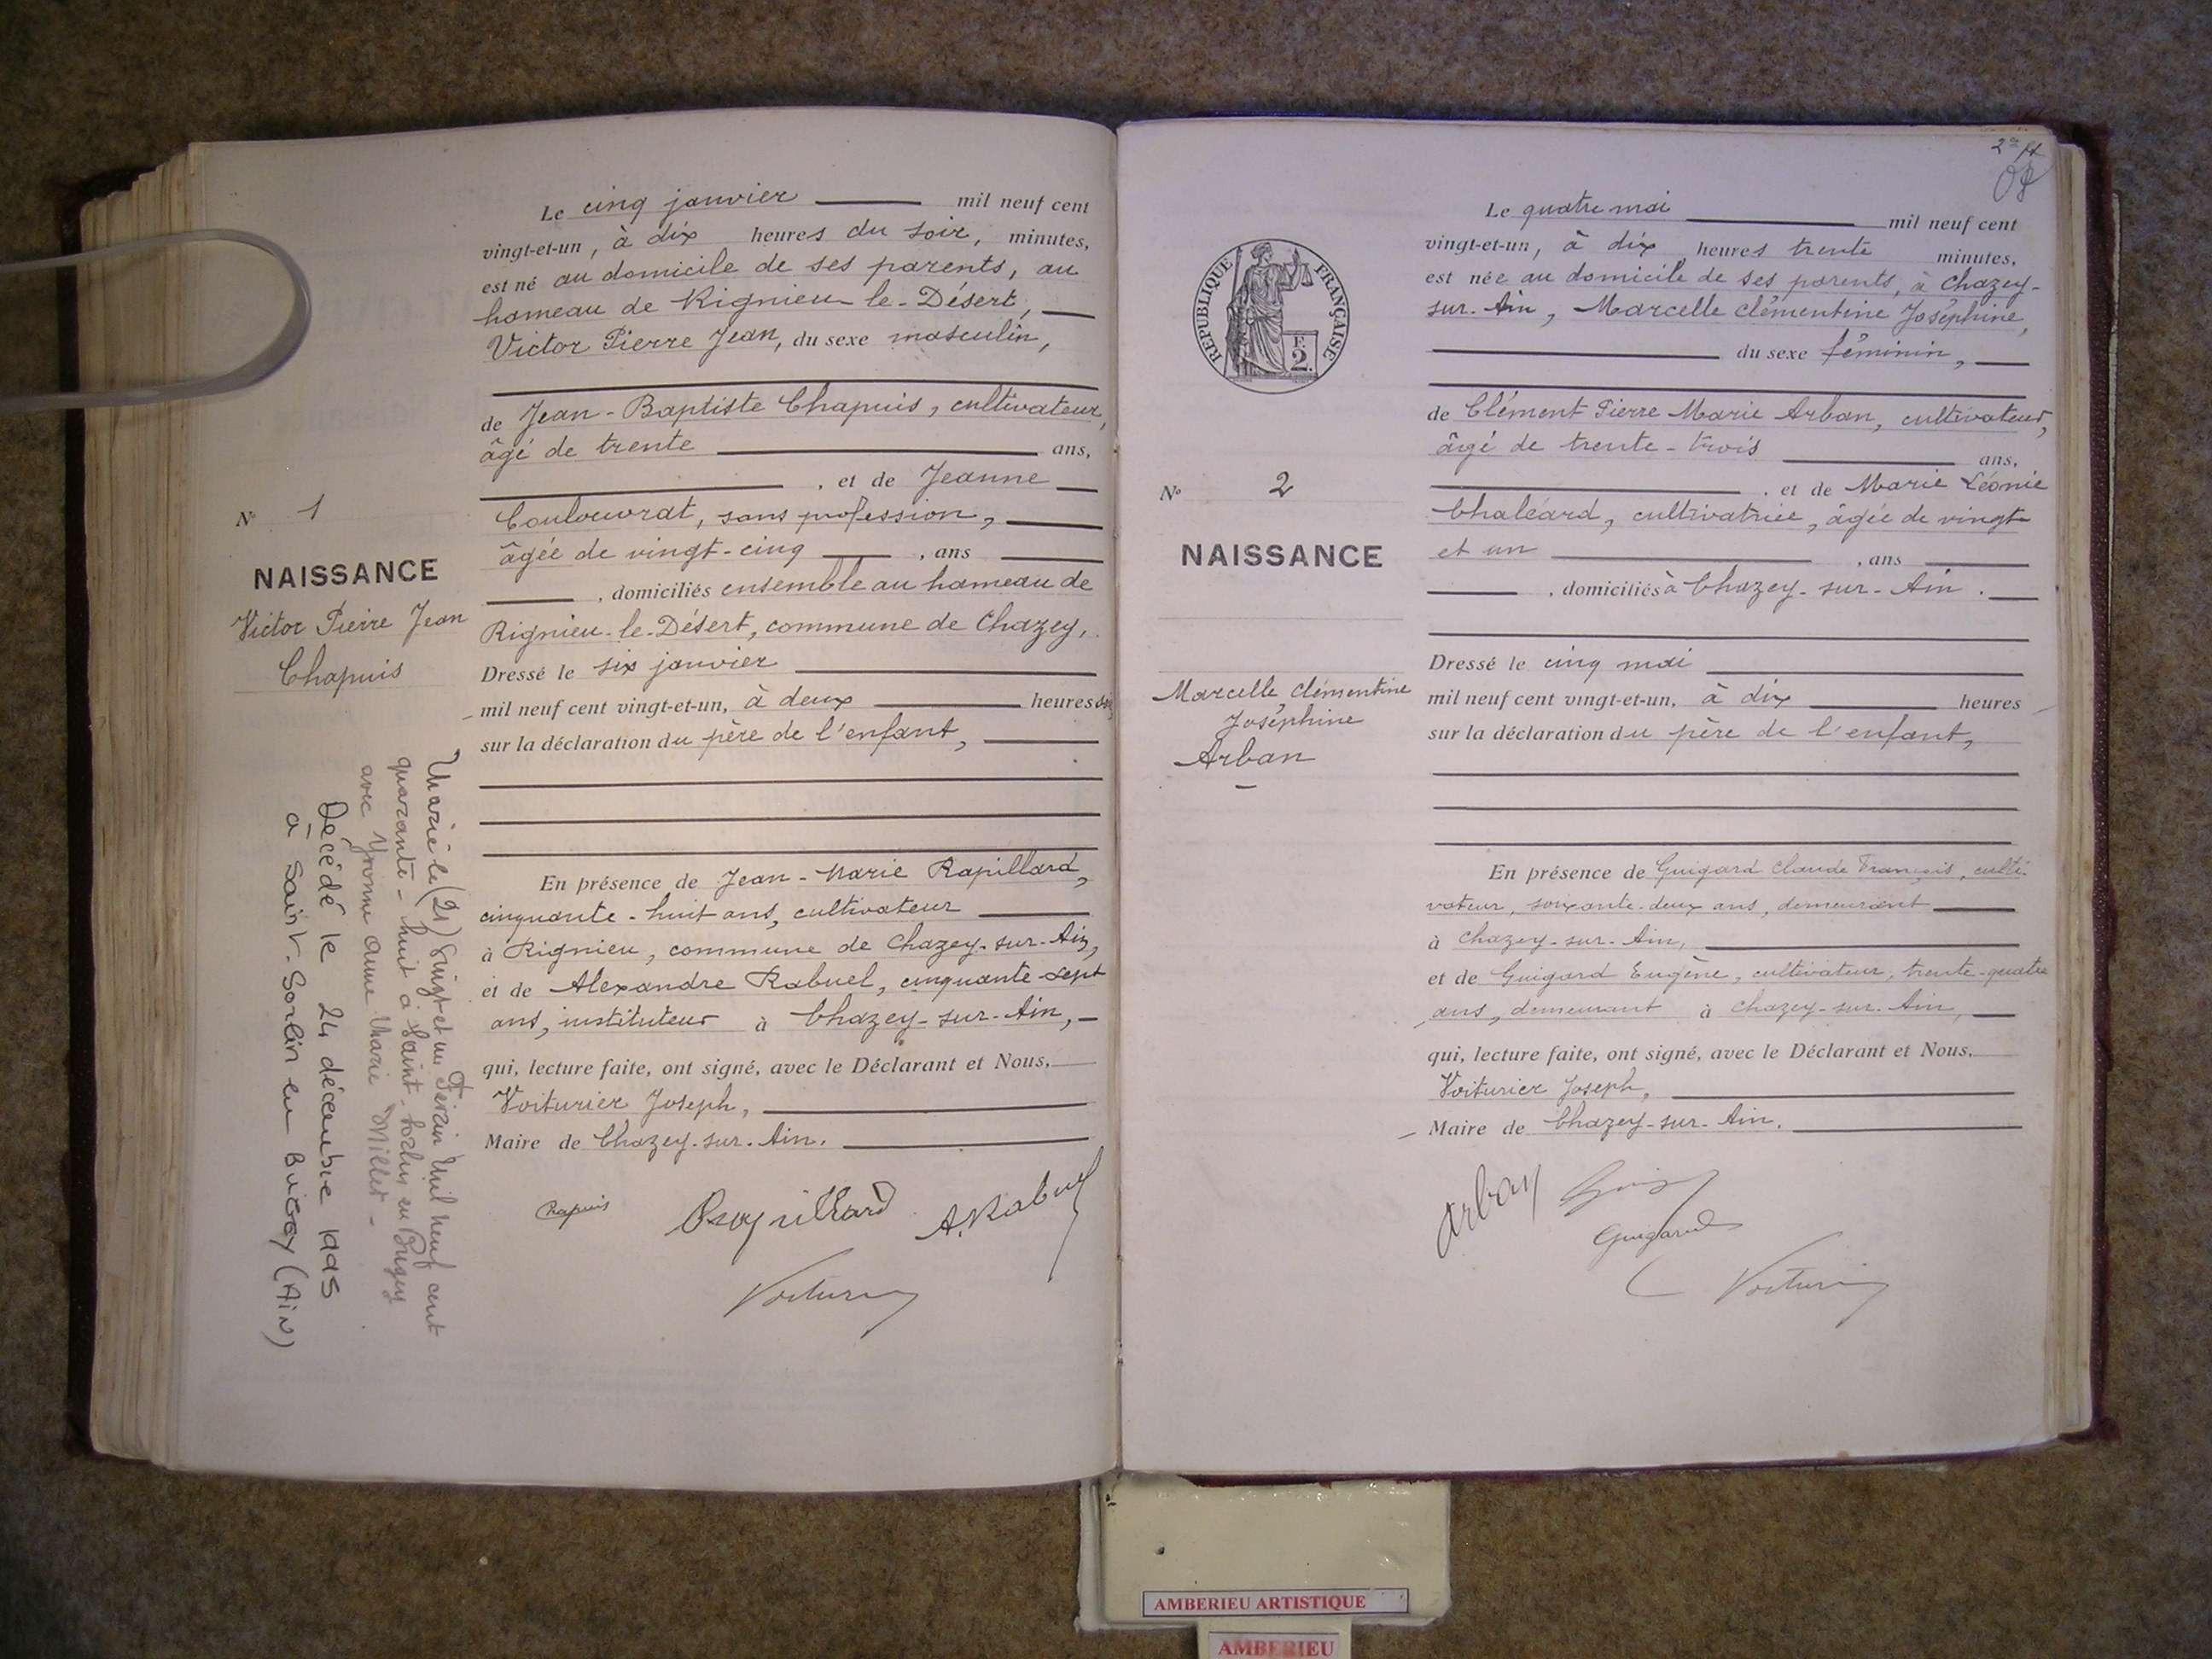 Le cinq janvier mil neuf cent
vingt-et-un, à dix heures du soir, minutes,
est né au domicile de ses parents, au
hameau de Rignieu-le-Désert,
Victor Pierre Jean, du sexe masculin,
de Jean-Baptiste Chapuis, cultivateur,
âgé de trente ans,
, et de Jeanne
Coulouvrat, sans profession,
âgée de vingt-cinq, ans
, domiciliés ensemble au hameau de
Rignieu-le-Désert, commune de Chazey,
Dressé le six janvier
mil neuf cent vingt-et-un, à deux heures
sur la déclaration du père de l'enfant,
En présence de Jean-Marie Rapillard,
cinquante-huit ans, cultivateur
à Rignieu, commune de Chazey-sur-Ain,
et de Alexandre Rabuel, cinquante-sept
ans, instituteur à Chazey-sur-Ain,
qui, lecture faite, ont signé, avec le Déclarant et Nous,
Voiturier Joseph,
Maire de Chazey-sur-Ain.
Chapuis Rapillard A. Rabuel
Voiturier
N° 1
NAISSANCE
Victor Pierre Jean
Chapuis
Marié le (21) Vingt et un Février Mil neuf cent
quarante-huit à Saint-Sorlin en Bugey
avec Yvonne Anne Marie Millet -
Décédé le 24 décembre 1995
à Saint-Sorlin en BUGEY (AiN)
RÉPUBLIQUE FRANÇAISE
F.
2.
N° 2
NAISSANCE
Marcelle Clémentine
Joséphine
Arban
Le quatre mai mil neuf cent
vingt-et-un, à dix heures trente minutes,
est née au domicile de ses parents, à Chazey-
sur-Ain, Marcelle Clémentine Joséphine,
du sexe féminin,
de Clément Pierre Marie Arban, cultivateur,
âgé de trente-trois ans,
, et de Marie Léonie
Chaléard, cultivatrice, âgée de vingt
et un, ans
, domiciliés à Chazey-sur-Ain.
Dressé le cinq mai
mil neuf cent vingt-et-un, à dix heures
sur la déclaration du père de l'enfant,
En présence de Guigard Claude François, culti-
vateur, soixante-deux ans, demeurant
à Chazey-sur-Ain,
et de Guigard Eugène, cultivateur, trente-quatre
ans, demeurant à Chazey-sur-Ain,
qui, lecture faite, ont signé, avec le Déclarant et Nous,
Voiturier Joseph,
Maire de Chazey-sur-Ain.
Arban
Guigard
Voiturier
AMBERIEU ARTISTIQUE
AMBERIEU